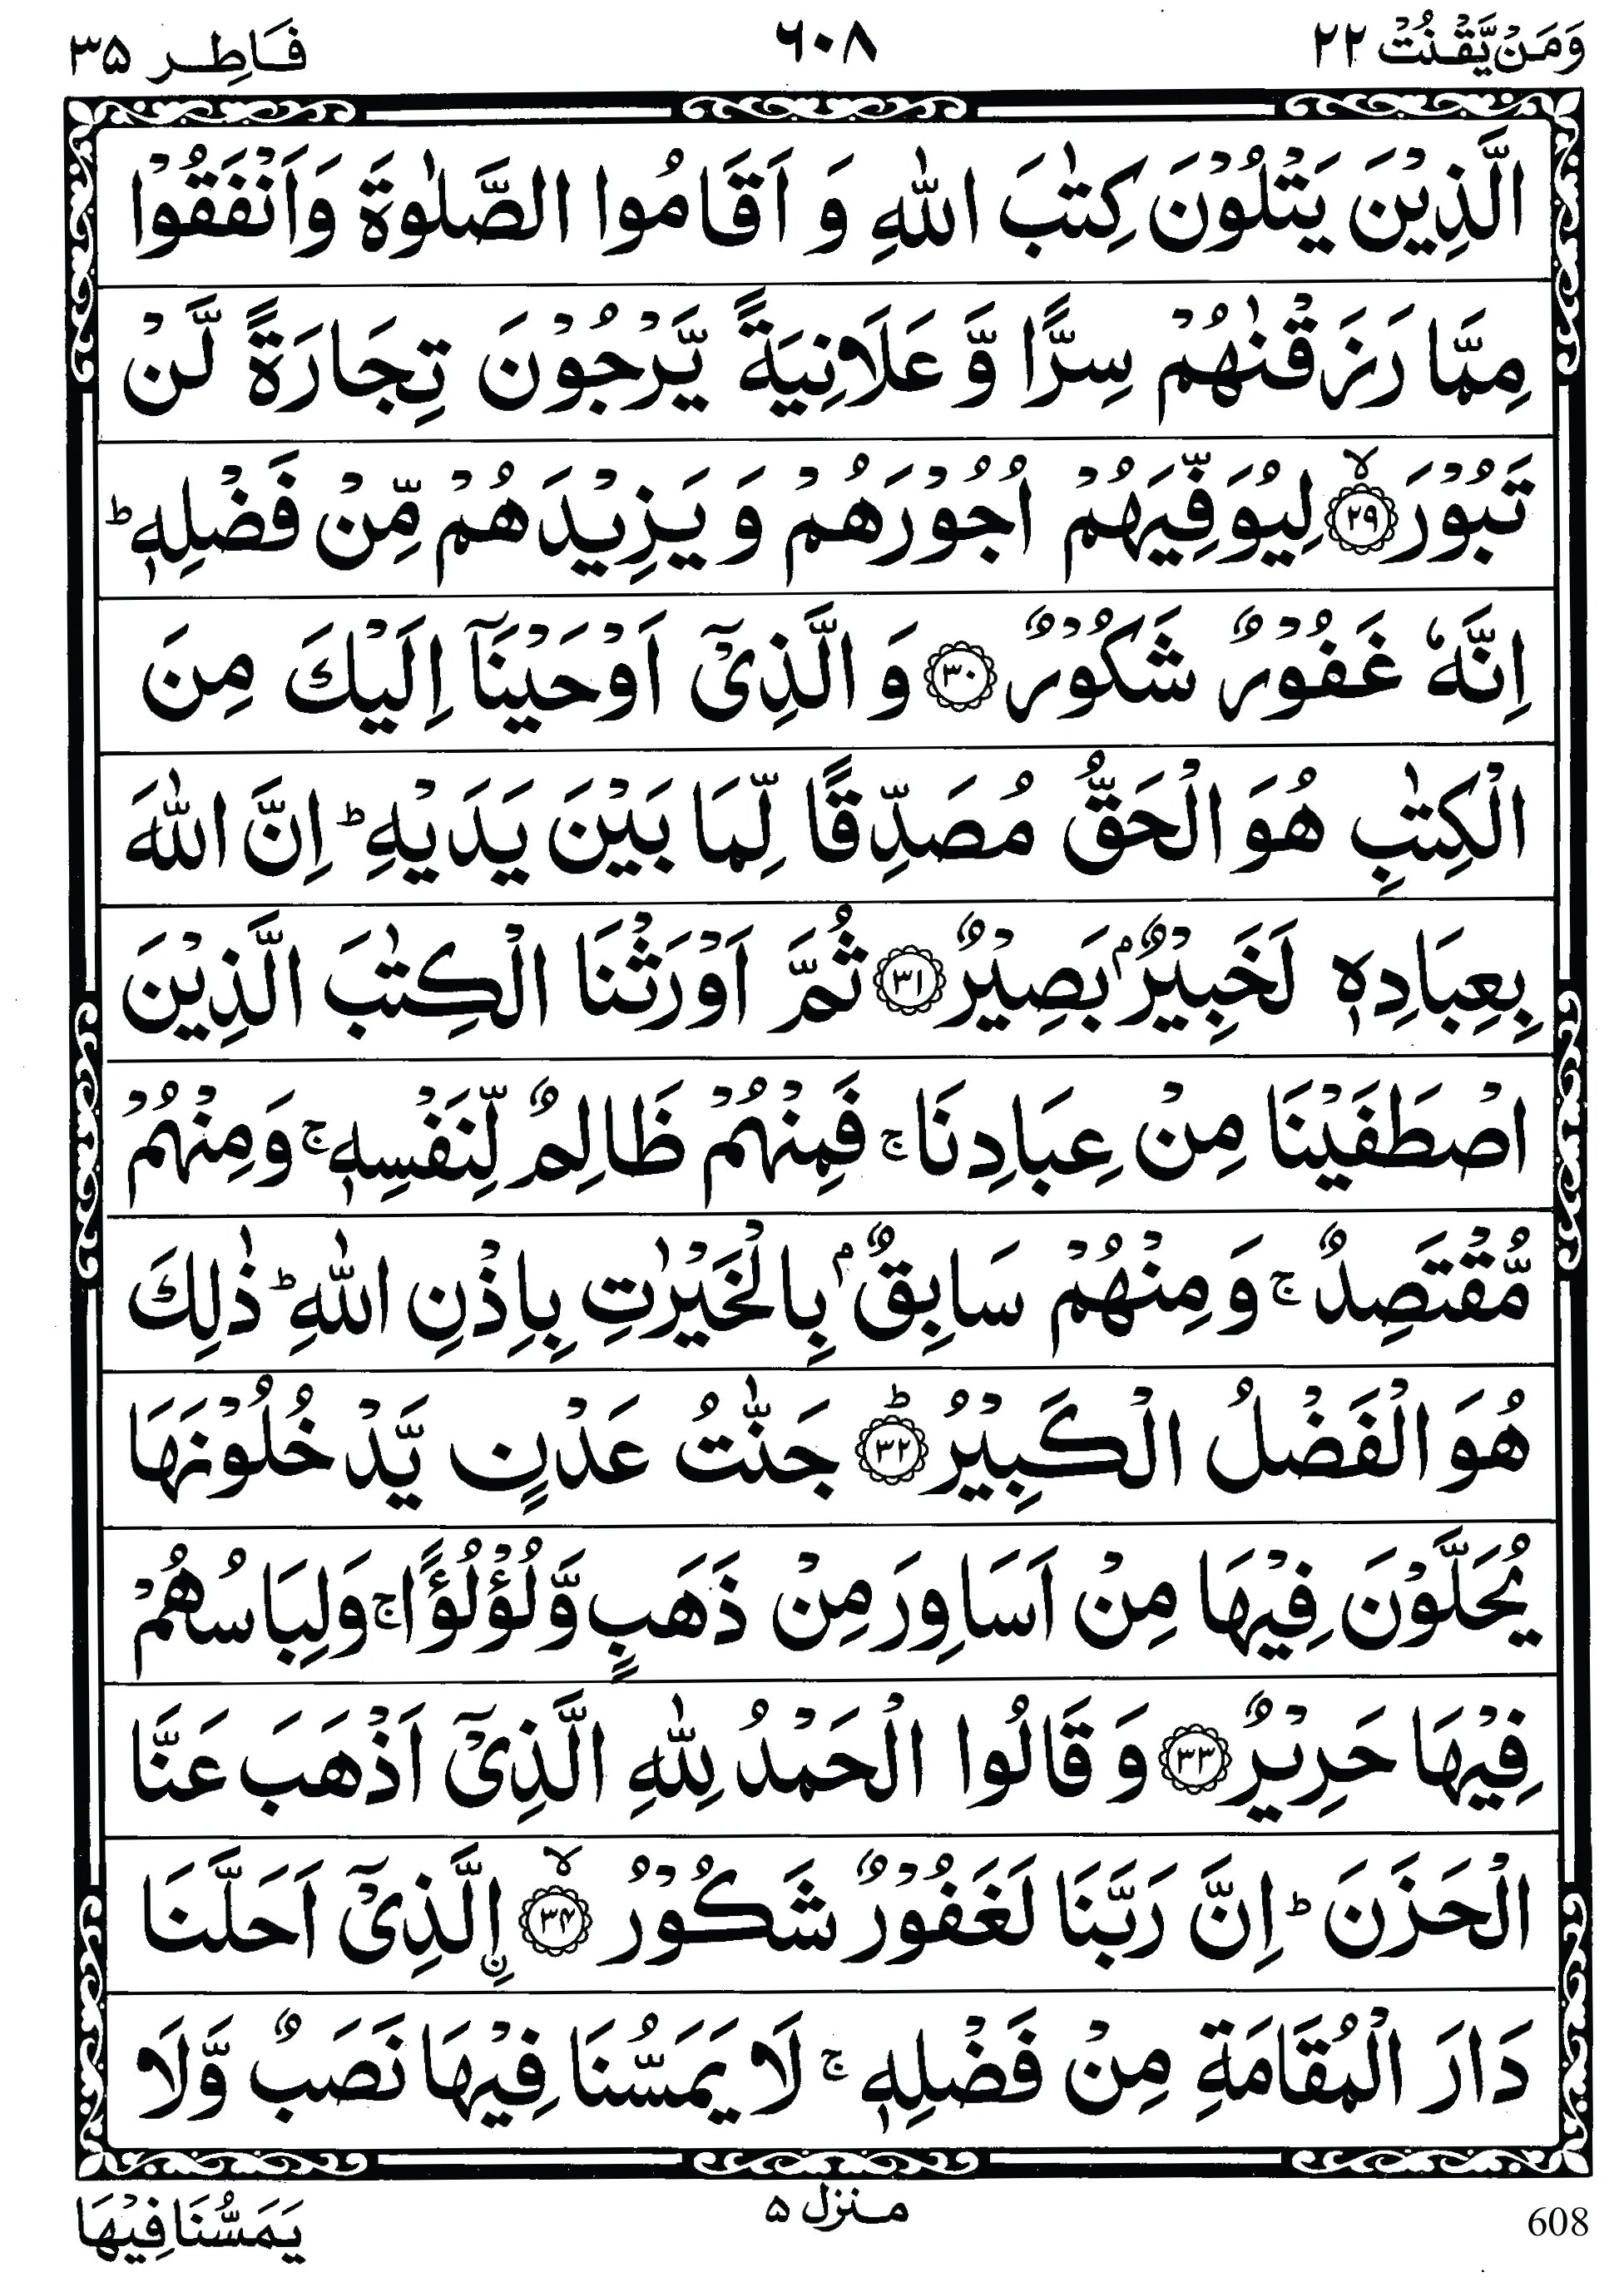 وَمَنْ يَّقْنُتْ ٢٢ ٦٠٨ فَاطِر ٣٥
الَّذِيْنَ يَتْلُوْنَ كِتٰبَ اللّٰهِ وَ اَقَامُوا الصَّلٰوةَ وَاَنْفَقُوْا
مِمَّا رَزَقْنٰهُمْ سِرًّا وَّ عَلَانِيَةً يَّرْجُوْنَ تِجَارَةً لَّنْ
تَبُوْرَ ۙ‏﴿۲۹﴾ لِيُوَفِّيَهُمْ اُجُوْرَهُمْ وَ يَزِيْدَهُمْ مِّنْ فَضْلِهٖ ؕ
اِنَّهٗ غَفُوْرٌ شَكُوْرٌ ﴿۳۰﴾ وَ الَّذِيْۤ اَوْحَيْنَاۤ اِلَيْكَ مِنَ
الْكِتٰبِ هُوَ الْحَقُّ مُصَدِّقًا لِّمَا بَيْنَ يَدَيْهِ ؕ اِنَّ اللّٰهَ
بِعِبَادِهٖ لَخَبِيْرٌۢ بَصِيْرٌ ﴿۳۱﴾ ثُمَّ اَوْرَثْنَا الْكِتٰبَ الَّذِيْنَ
اصْطَفَيْنَا مِنْ عِبَادِنَا ۚ فَمِنْهُمْ ظَالِمٌ لِّنَفْسِهٖ ۚ وَمِنْهُمْ
مُّقْتَصِدٌ ۚ وَمِنْهُمْ سَابِقٌۢ بِالْخَيْرٰتِ بِاِذْنِ اللّٰهِ ؕ ذٰلِكَ
هُوَ الْفَضْلُ الْكَبِيْرُ ؕ﴿۳۲﴾ جَنّٰتُ عَدْنٍ يَّدْخُلُوْنَهَا
يُحَلَّوْنَ فِيْهَا مِنْ اَسَاوِرَ مِنْ ذَهَبٍ وَّلُؤْلُؤًا ۚ وَلِبَاسُهُمْ
فِيْهَا حَرِيْرٌ ﴿۳۳﴾ وَ قَالُوا الْحَمْدُ لِلّٰهِ الَّذِيْۤ اَذْهَبَ عَنَّا
الْحَزَنَ ؕ اِنَّ رَبَّنَا لَغَفُوْرٌ شَكُوْرُ ۙ﴿۳۴﴾ ۨالَّذِيْۤ اَحَلَّنَا
دَارَ الْمُقَامَةِ مِنْ فَضْلِهٖ ۚ لَا يَمَسُّنَا فِيْهَا نَصَبٌ وَّلَا
608 منزل ۵ يَمَسُّنَا فِيْهَا